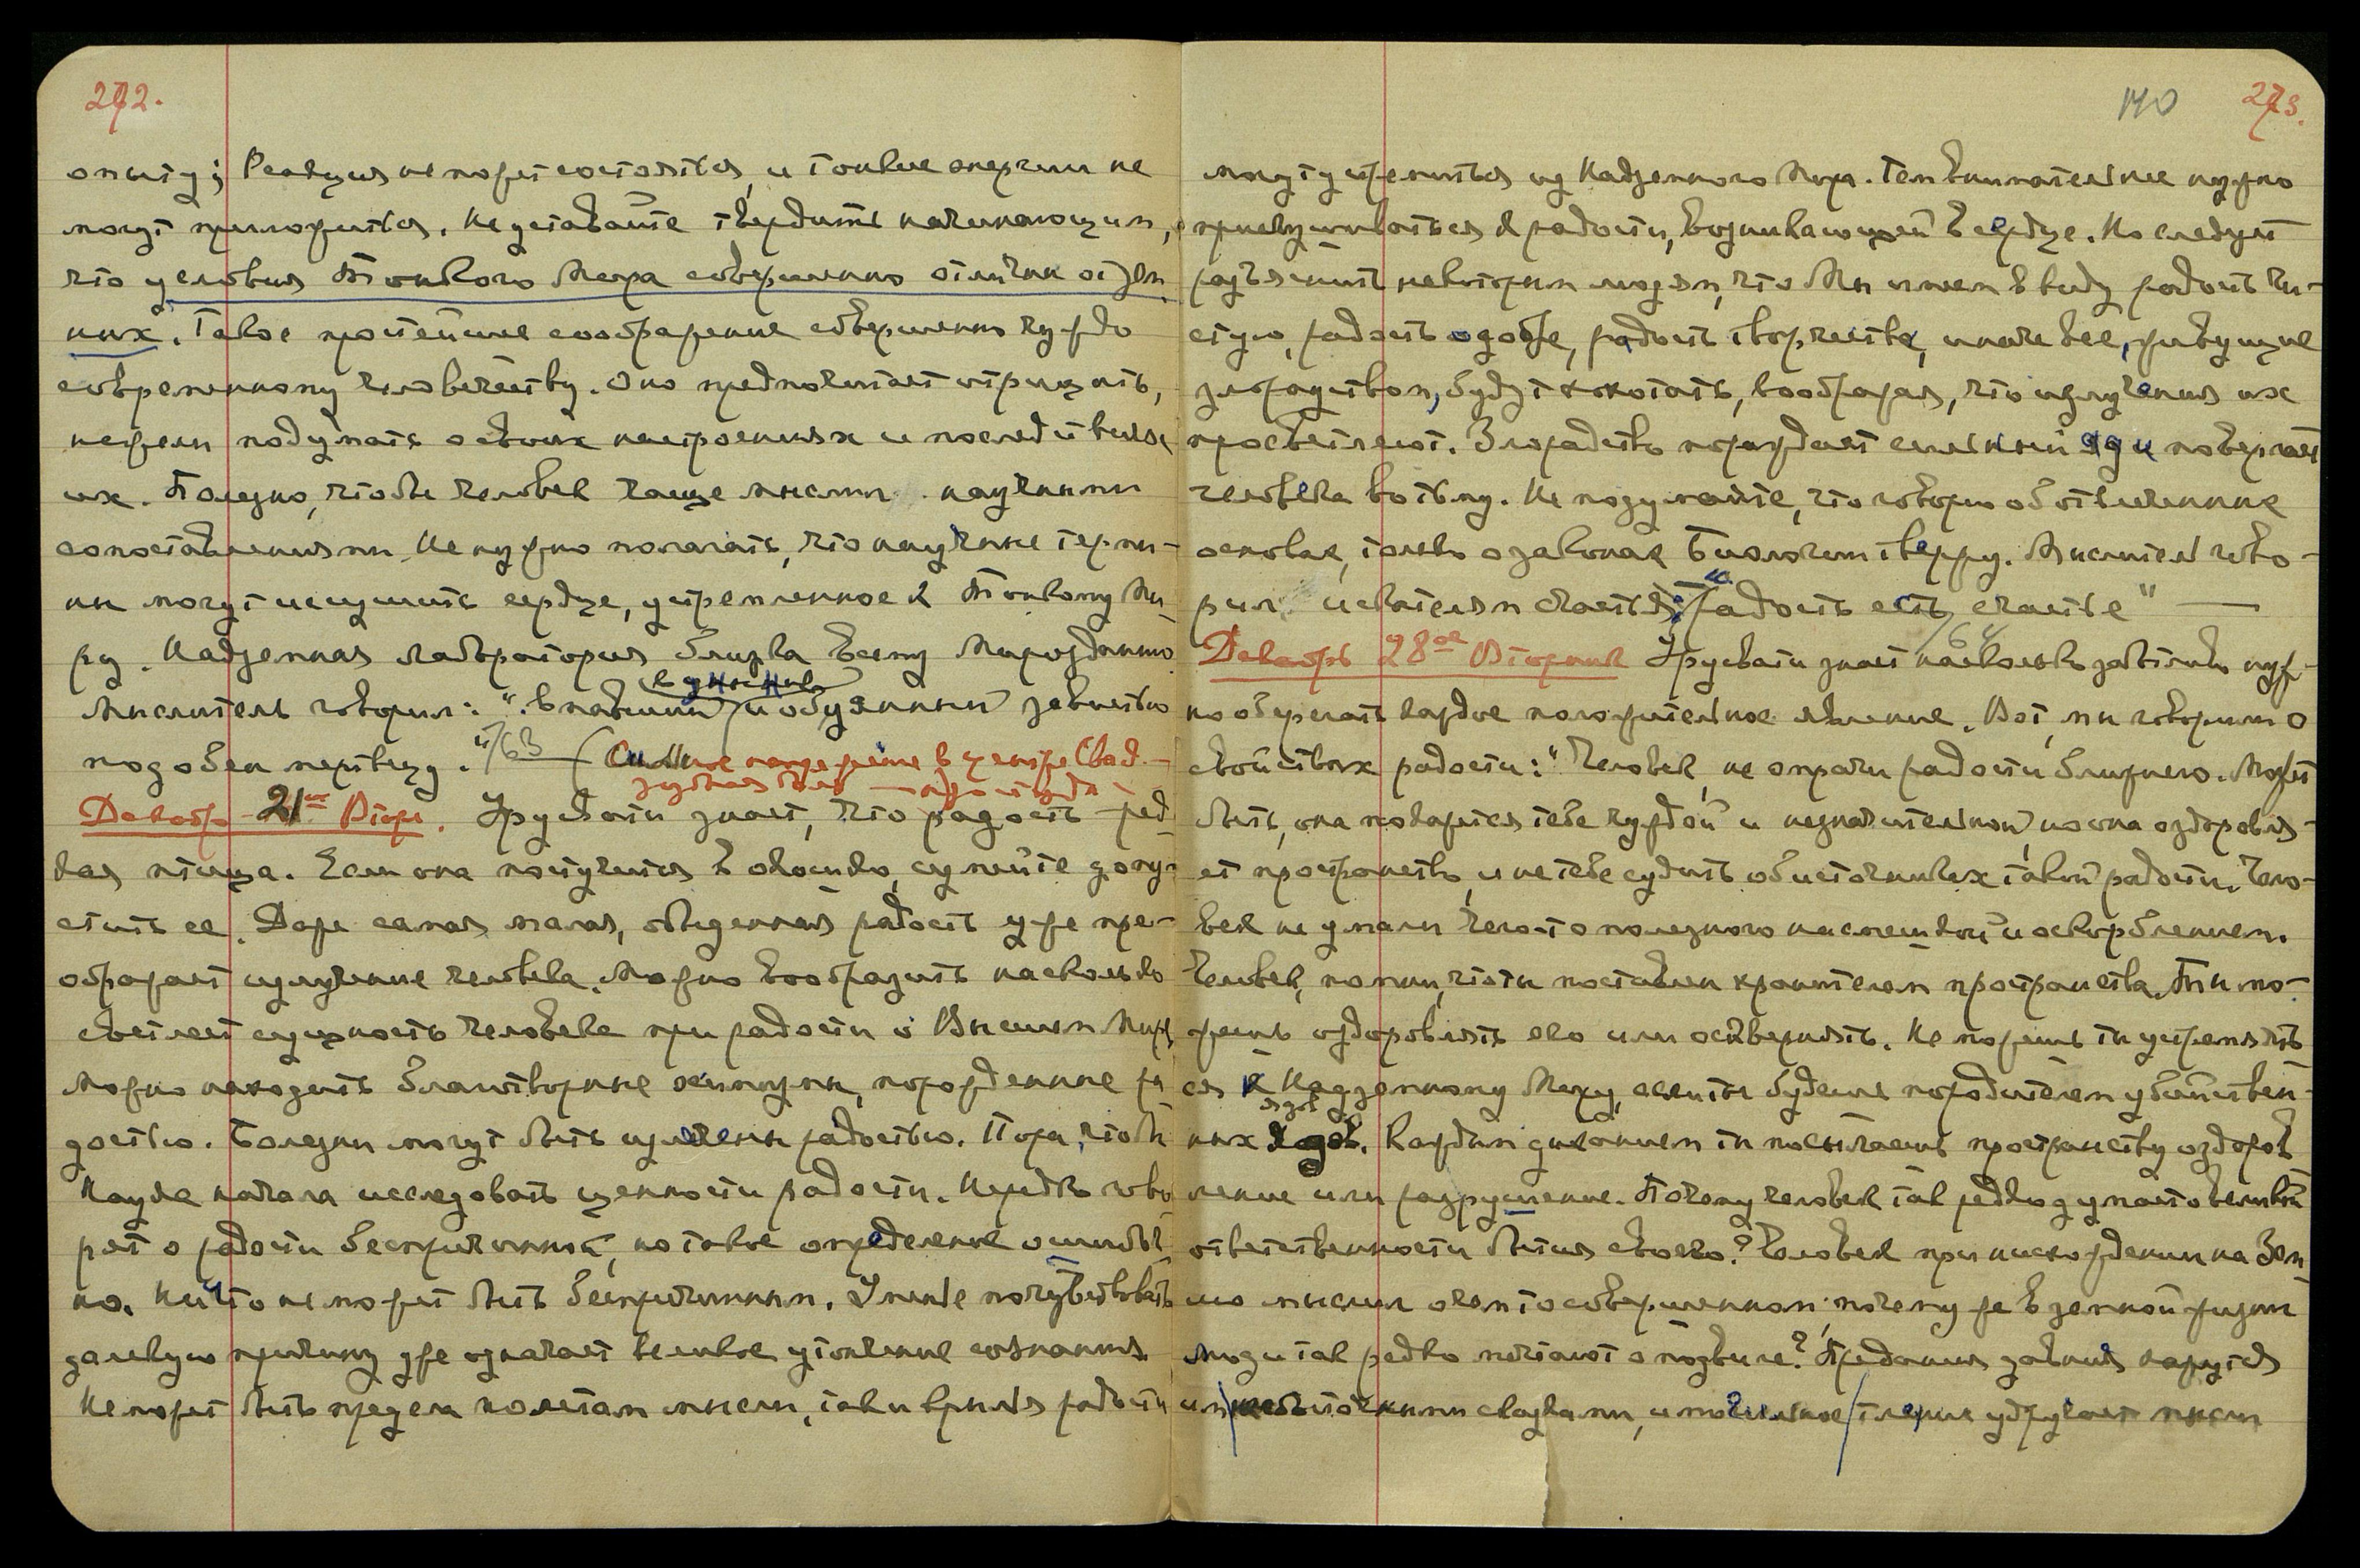 272.
опыту; Реакция не может состояться, и тонкие энергии не
могут приложиться. Не уставайте твердить начинающим,
что условия Тонкого Мира совершенно отличны от зем
ных. Такое простейшее соображение совершенно чуждо
современному человечеству. Оно предпочитает отрицать,
нежели подумать о своих настроениях и последствиях
их. Полезно, чтобы человек чаще мыслил научными
сопоставлениями. Не нужно полагать, что научные терми-
ны могут иссушить сердце, устремленное к Тонкому Ми-
ру. Надземная лаборатория близка всему Мирозданию
Мыслитель говорил: "впавший в уныние и обуянный завистью
подобен мертвецу." 163 — (Сильное напряжение в центре
зубная боль —
Декабр 21ое Вторн. Урусвати знает, что радость — ред-
кая птица. Если она постучится в окошко, сумейте допу-
стить ее. Даже самая малая, обыденная радость уже пре-
ображает излучение человека. Можно вообразить насколько
светлеет сущность человека при радости о Высшем Мире
Можно находить благотворные импульсы, порожденные ра
достью. Болезни могут быть излечены радостью. Пора, чтобы
Наука начала исследовать ценности радости. Нередко гово
рят о радости беспричинной, но такое определение ошибоч
но. Ничто не может быть беспричинным. Умение почувствовать
далекую причину уже означает великое утончение сознания
Не может быть предела полетам мысли, так и крылья радости
140 273.
могут устремиться из Надземного Мира. Тем внимательнее нужно
прислушиваться к радости, возникающей в сердце. Но следует
разъяснить некоторым людям, что Мы имеем в виду радость чи-
стую, радость о добре, радость творчества, иначе все, живущие
злорадством, будут хохотать, воображая, что излучения их
просветляют. Злорадство порождает сильный яд и повергает
человека во тьму. Не подумайте, что говорю об отвлеченных
основах, только о законах Биологии твержу. Мыслитель гово-
рил искателям счастья: "Радость есть счастье" —
64
Декабрь 28ое Вторник Урусвати знает насколько заботливо нуж-
но оберегать каждое положительное явление. Вот, мы говорим о
свойствах радости: "Человек, не омрачи радости ближнего. Может
быть, она покажется тебе чуждой и незначительной, но она оздоровля-
ет пространство, и не тебе судить об источниках такой радости. Чело-
век не умали чего-то полезного насмешкой и оскорблением.
Человек, помни, что ты поставлен хранителем пространства. Ты мо-
жешь оздоровлять его или осквернять. Не можешь ты устремлять
ся к Надземному Миру, если ты будешь породителем убийствен-
ных ядов. Каждым дыханием ты посылаешь пространству оздоров
ление или разрушение. Почему человек так редко думает о великой
ответственности бытия своего? Человек при нисхождении на Зем
лю мыслил о чем-то совершенном; почему же в земной жизни
люди так редко мечтают о подвиге? Предания давния кажутся
им несбыточными сказками, и могильное тление удручает мысли